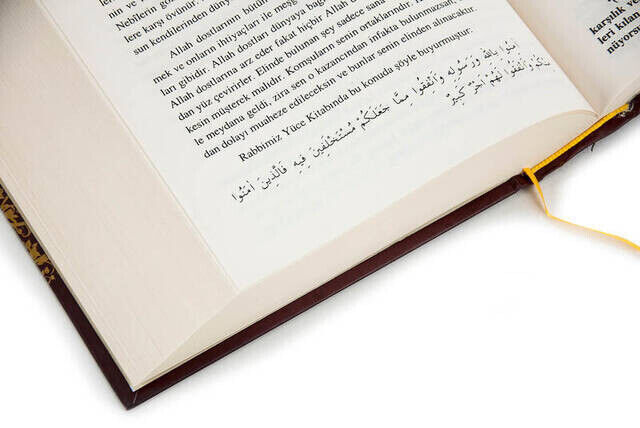 Nebîlerin
lere karşı övünür.
sun kendilerinden dünya
Allah dostlarının bütün
mek ve onların ihtiyaçları ile meşg
ları gibidir. Allah dostları dünyaya bağ
Allah dostlarına arz eder fakat hiçbir Allah d
dan yüz çevirirler. Elinde bulunan şey sadece sana
kesin müşterek malıdır. Komşuların senin ortaklarındır. H
le meydana geldi, zira sen o kazancından infakta bulunmazsan,
dan dolayı muaheze edileceksin ve bunlar senin elinden alınacaktır.
Rabbimiz Yüce Kitabında bu konuda şöyle buyurmuştur.
اٰمِنُوا بِاللّٰهِ وَرَسُولِهِ وَاَنْفِقُوا مِمَّا جَعَلَكُمْ مُسْتَخْلَفِينَ فِيهِ فَالَّذِينَ اٰمَنُوا
مِنْكُمْ وَاَنْفَقُوا لَهُمْ اَجْرٌ كَبِيرٌ
karşılık v
leri kılan
nüyorsu